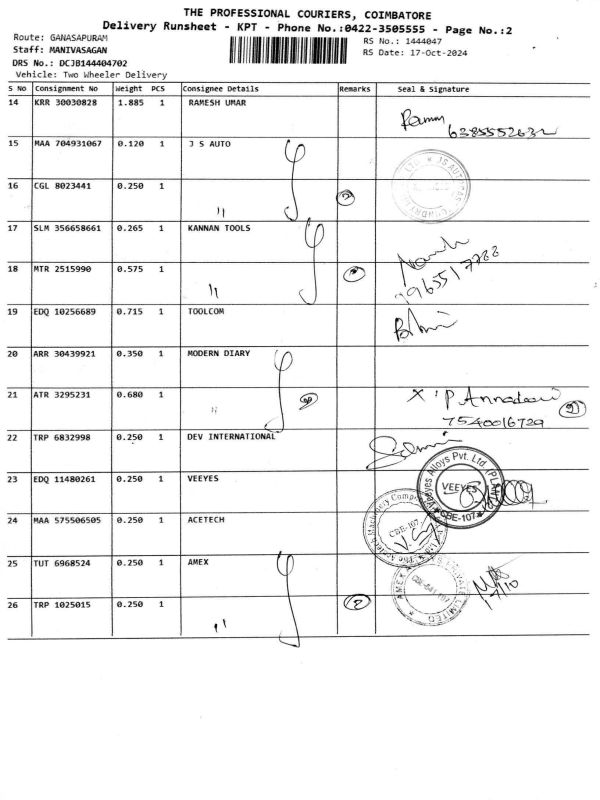 THE PROFESSIONAL COURIERS, COIMBATORE
Delivery Runsheet - KPT - Phone No.:0422-3505555 - Page No.:2
Route: GANASAPURAM
RS No.: 1444047
Staff: MANIVASAGAN
RS Date: 17-Oct-2024
DRS No.: DCJB144404702
Vehicle: Two Wheeler Delivery
S No Consignment No Weight PCS Consignee Details Remarks Seal & Signature
14 KRR 30030828 1.885 1 RAMESH UMAR
6385552632
15 MAA 704931067 0.120 1 J S AUTO
16 CGL 8023441 0.250 1 "
17 SLM 356658661 0.265 1 KANNAN TOOLS
9965517788
18 MTR 2515990 0.575 1 "
19 EDQ 10256689 0.715 1 TOOLCOM
20 ARR 30439921 0.350 1 MODERN DIARY
21 ATR 3295231 0.680 1 "
7540016729
22 TRP 6832998 0.250 1 DEV INTERNATIONAL
23 EDQ 11480261 0.250 1 VEEYES
Veeyes Alloys Pvt. Ltd.
VEEYES
CBE-107
24 MAA 575506505 0.250 1 ACETECH
CBE-107
25 TUT 6968524 0.250 1 AMEX
17/10
26 TRP 1025015 0.250 1 "